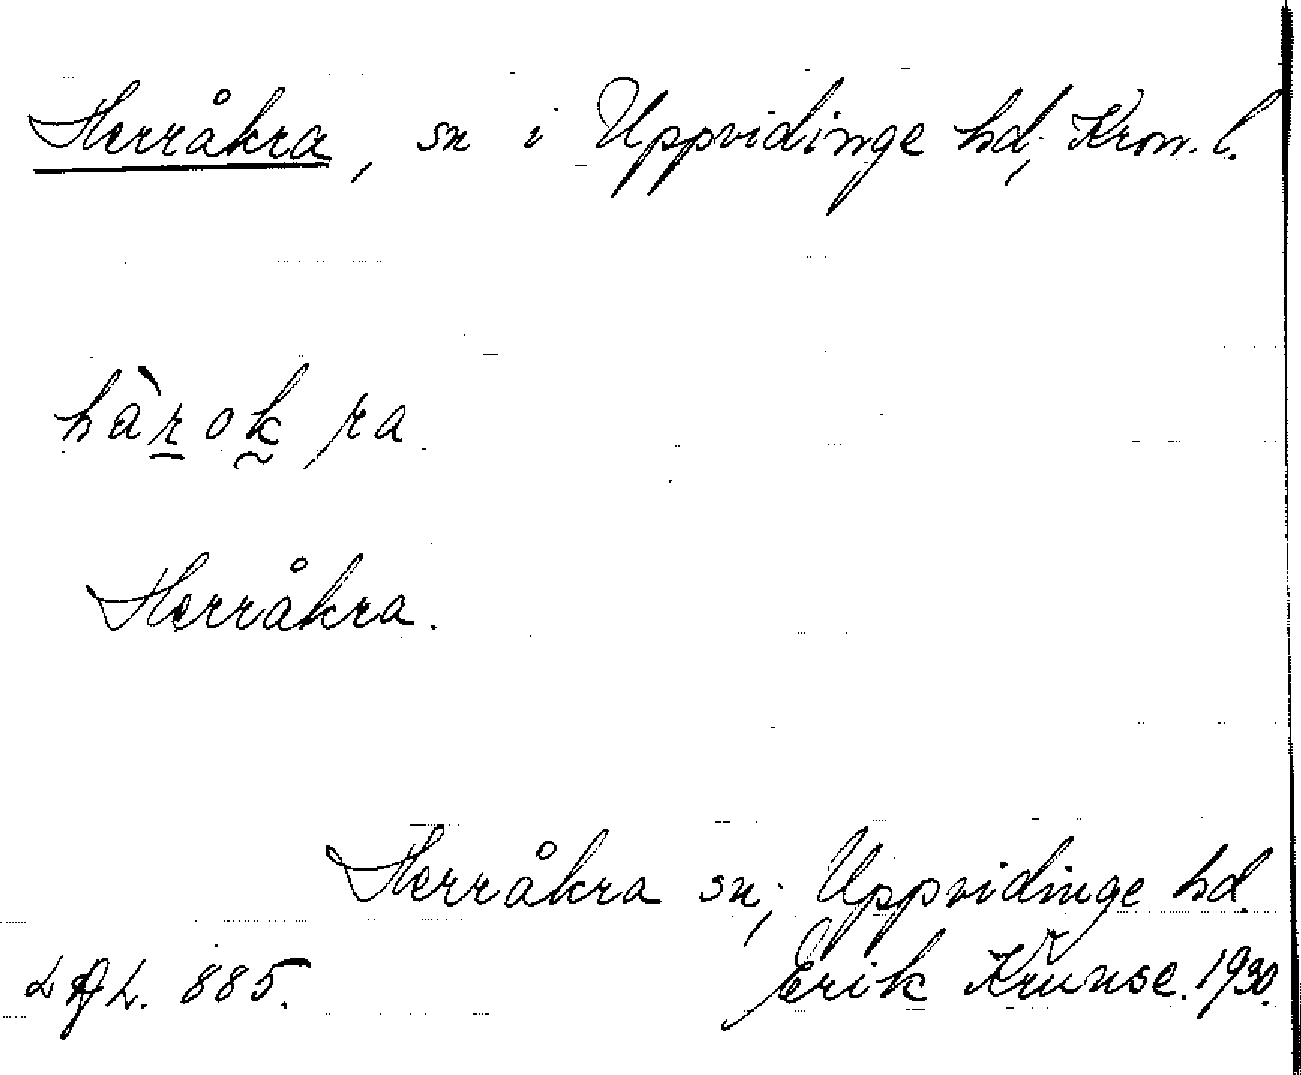 Herråkra, sn i Uppvidinge hd, Kron. l.
hàrokra
Herråkra.
Herråkra sn; Uppvidinge hd.
885. Erik 1930.